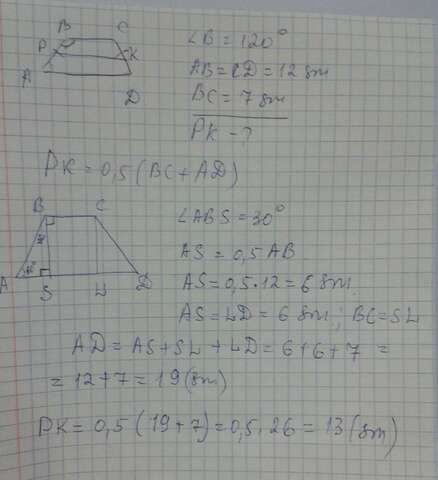 B C
∠B = 120°
P K
AB = CD = 12 дм
A
BC = 7 дм
D
PK - ?
PK = 0,5 (BC + AD)
B C
∠ABS = 30°
AS = 0,5 AB
A S L D
AS = 0,5 · 12 = 6 дм.
AS = LD = 6 дм; BC = SL
AD = AS + SL + LD = 6 + 6 + 7 =
= 12 + 7 = 19 (дм)
PK = 0,5 (19 + 7) = 0,5 · 26 = 13 (дм)